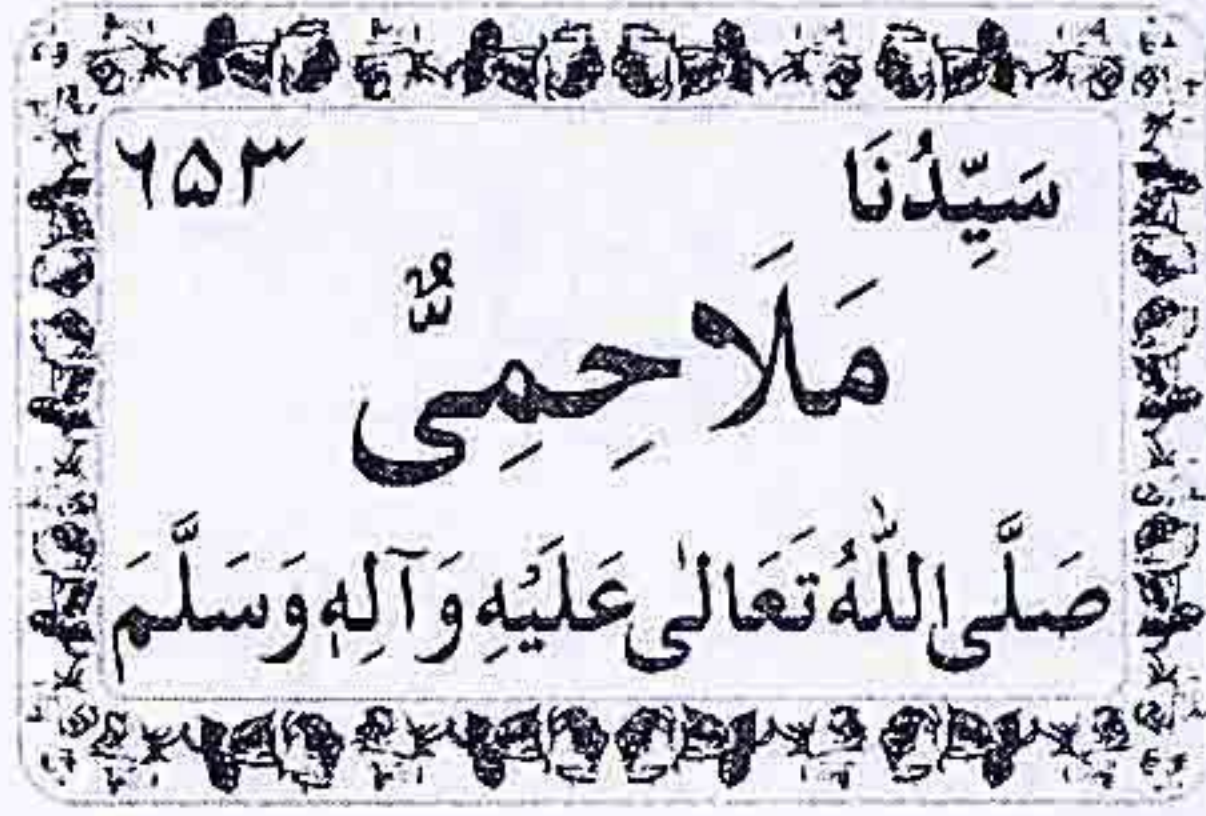 سَيِّدُنَا ۶۵۳
مَلَاحِمِىٌّ
صَلَّى اللّٰهُ تَعَالٰى عَلَيْهِ وَآلِهٖ وَسَلَّمَ